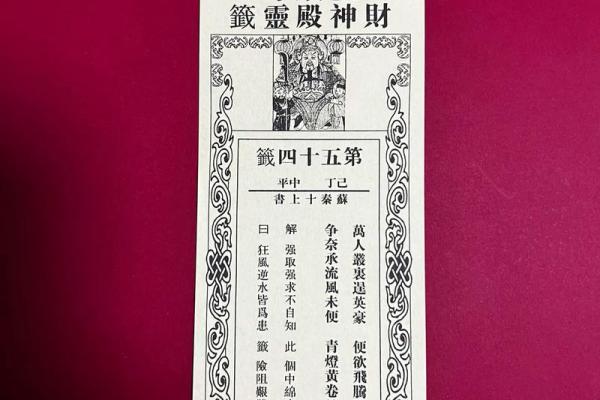 財神殿靈籤
第五十四籤
己丁 中平
蘇秦十上書
萬人叢裏逞英豪 便欲飛騰
争奈承流風未便 青燈黃卷
解 强取强求不自知 此 個中綿
曰 狂風逆水皆爲患 籤 險阻艱